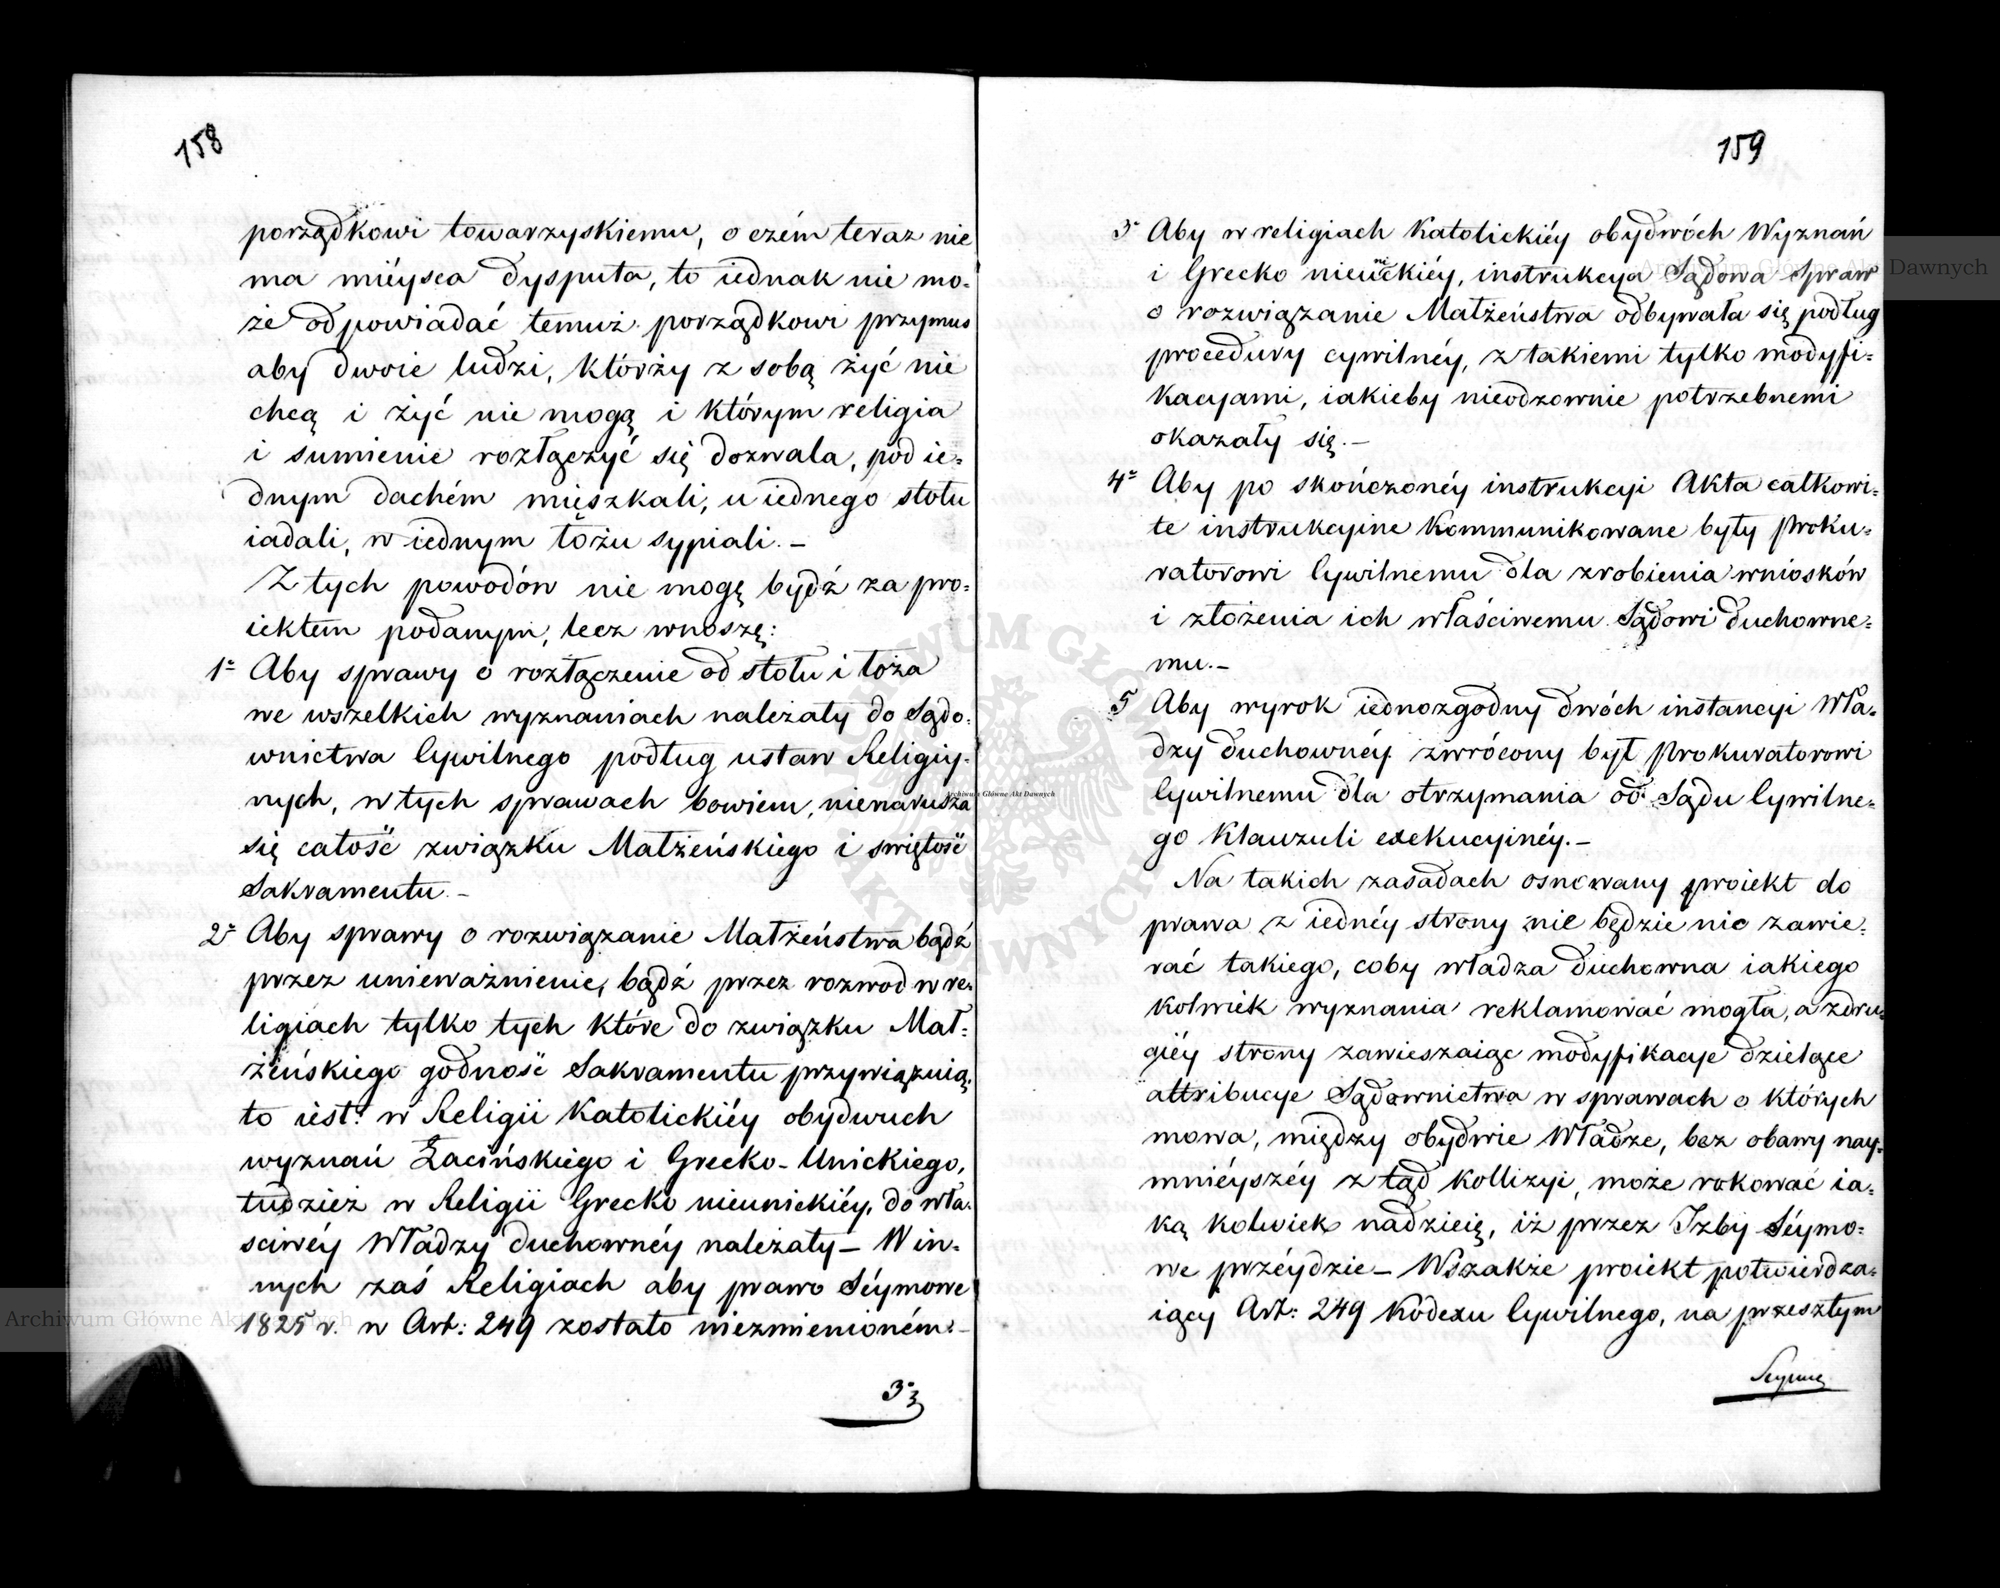 158
porządkowi towarzyskiemu, o czém teraz nie
ma miéysca dysputa, to iednak nie mo-
że odpowiadać temuż porządkowi przymus
aby dwoie ludzi, którzy z sobą żyć nie
chcą i żyć nie mogą i którym religia
i sumienie rozłączyć się dozwala, pod ie-
dnym dachém mięszkali, u iednego stołu
iadali, w iednym łożu sypiali. –
Z tych powodów nie mogę bydź za pro-
iektem podanym, lecz wnoszę:
1° Aby sprawy o rozłączenie od stołu i łoża
we wszelkich wyznaniach należały do Sądo-
wnictwa Cywilnego podług ustaw Religiy-
nych, w tych sprawach bowiem, nienarusza
się całość związku Małżeńskiego i swiętość
Sakramentu. –
2° Aby sprawy o rozwiązanie Małżeństwa bądź
przez unieważnienie, bądź przez rozwod w re-
ligiach tylko tych które do związku Mał-
żeńskiego godność Sakramentu przywiązuią,
to iést: w Religii Katolickiéy obydwuch
wyznań Łacińskiego i Grecko-Unickiego,
tudzież w Religii Grecko nieunickiéy, do wła-
sciwéy Władzy duchownéy należały – W in-
nych zaś Religiach aby prawo Séymowe
1825 r. w Art: 249 zostało niezmienioném. –
3°
159
3° Aby w religiach Katolickiéy obydwóch Wyznań
i Grecko nieunickiéy, instrukcya Sądowa Spraw
o rozwiązanie Małżeństwa odbywała się podług
procedury cywilnéy, z takiemi tylko modyfi-
kacyami, iakieby nieodzownie potrzebnemi
okazały się. –
4° Aby po skończonéy instrukcyi Akta całkowi-
te instrukcyine kommunikowane były Proku-
ratorowi Cywilnemu dla zrobienia wniosków
i złożenia ich właściwemu Sądowi duchowne-
mu. –
5 Aby wyrok iednozgodny dwóch instancyi Wła-
dzy duchownéy zwrócony był Prokuratorowi
Cywilnemu dla otrzymania od Sądu Cywilne-
go Klauzuli exekucyinéy. –
Na takich zasadach osnowany proiekt do
prawa z iednéy strony nie będzie nic zawie-
rać takiego, coby władza duchowna iakiego
kolwiek wyznania reklamować mogła, a z dru-
giéy strony zawieszaiąc modyfikacye dzielące
attribucye Sądownictwa w sprawach o których
mowa, między obydwie Władze, bez obawy nay-
mniéyszéy z tąd kollizyi, może rokować ia-
ką kolwiek nadzieię, iż przez Izby Séymo-
we przéydzie – Wszakże proiekt potwierdza-
iący Art: 249 Kodexu Cywilnego, na przeszłym
Seymie
Archiwum Główne Akt Dawnych
ARCHIWUM GŁÓWNE AKT DAWNYCH
Archiwum Główne Akt Dawnych
Archiwum Główne Akt Dawnych